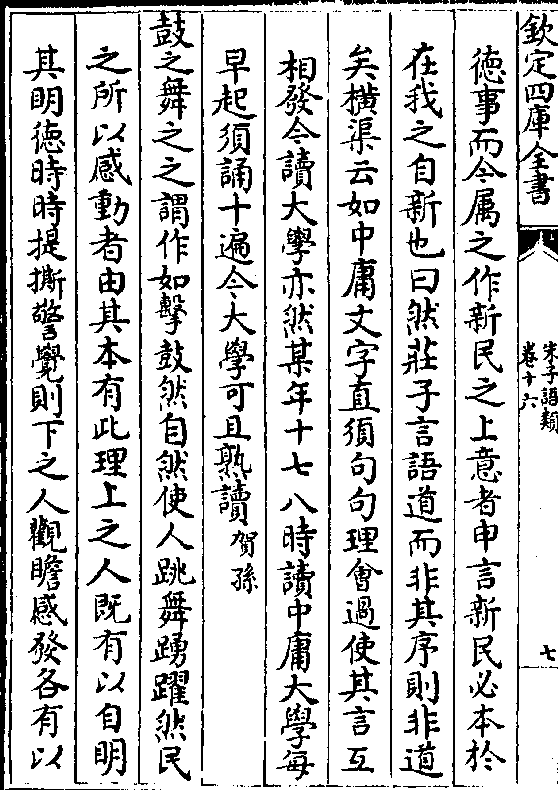 欽定四庫全書
朱子語類
卷十六
七
德事而今属之作新民之上意者申言新民必本於
在我之自新也曰然莊子言語道而非其序則非道
矣橫渠云如中庸文字直須句句理會過使其言互
相發今讀大學亦然某年十七八時讀中庸大學每
早起須誦十遍今大學可且熟讀賀孫
鼓之舞之之謂作如擊鼓然自然使人跳舞踴躍然民
之所以感動者由其本有此理上之人既有以自明
其明德時時提撕警覺則下之人觀瞻感發各有以